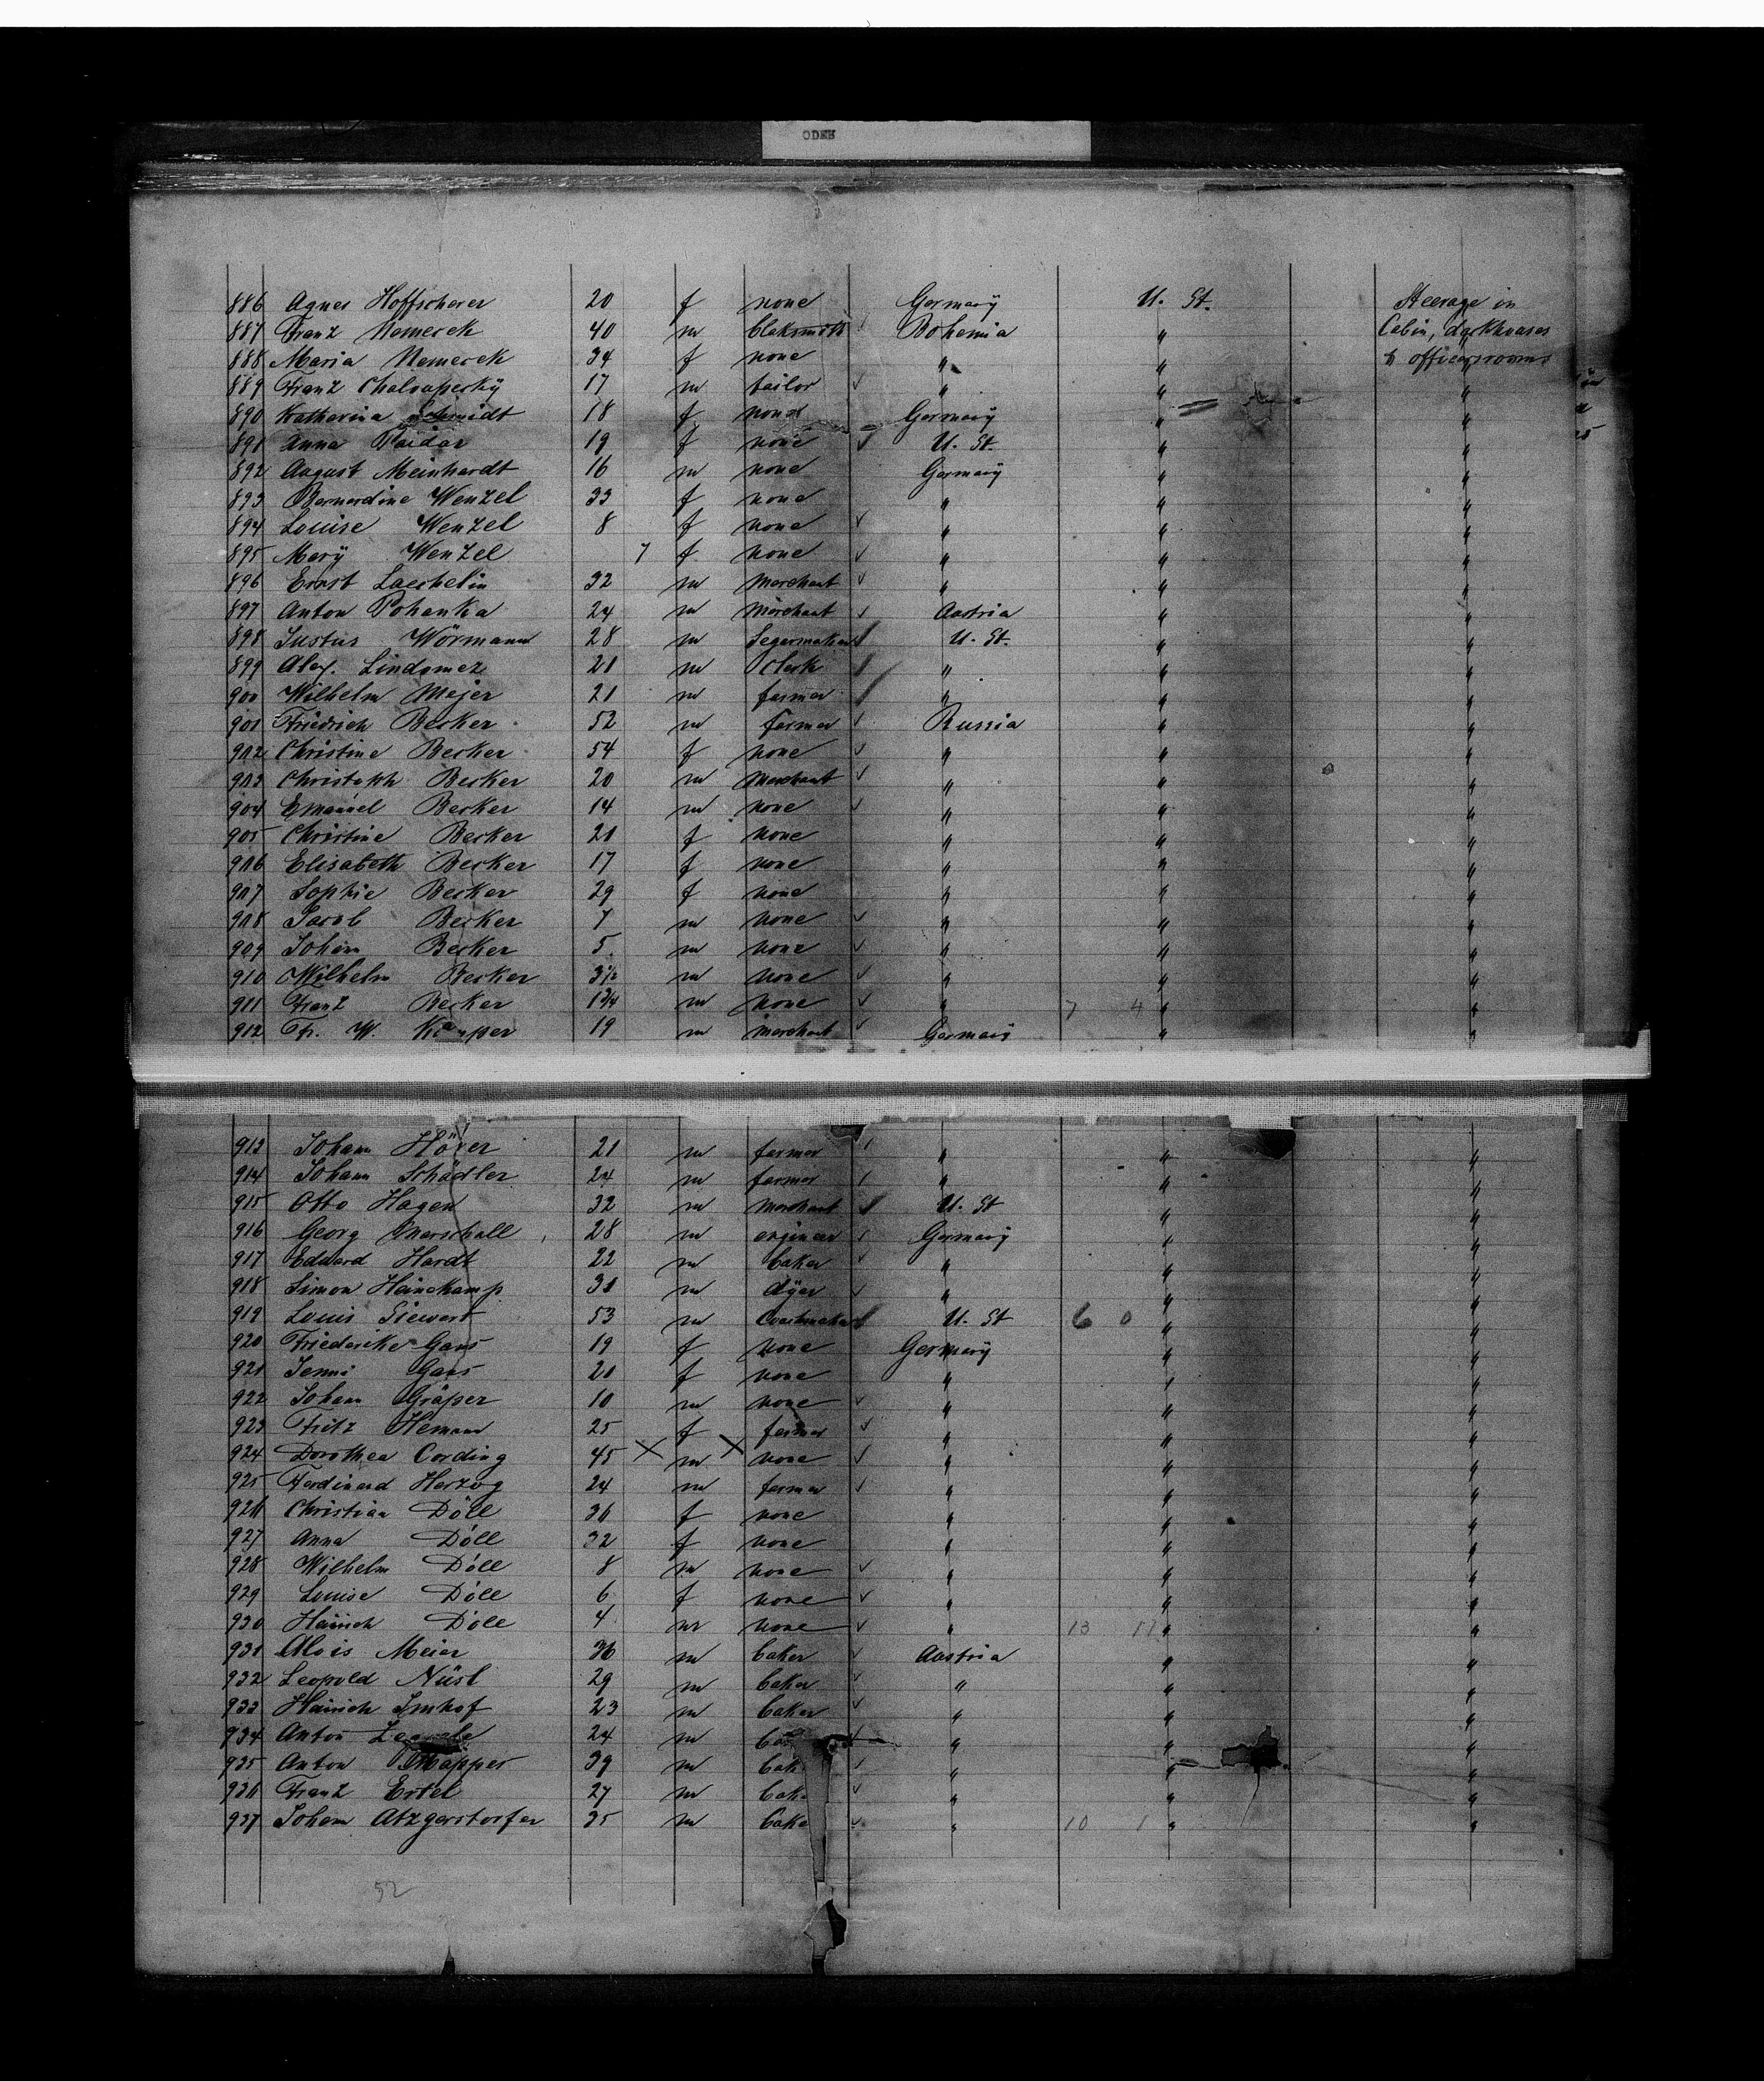 ODEH
886 Agnes Hoffscherer 20 f none Germany U. St. Steerage in
887 Franz Nemecek 40 m blaksmith Bohemia " Cabin, dorkhouses
888 Maria Nemecek 34 f none " " & officersrooms
889 Franz Chaloupecky 17 m tailor " " "
890 Katharina Schmidt 18 f none Germany " "
891 Anna Paidar 19 f none U. St. " "
892 August Meinhardt 16 m none Germany " "
893 Bernardine Wenzel 33 f none " " "
894 Louise Wenzel 8 f none " " "
895 Mary Wenzel 7 f none " " "
896 Ernst Laechelin 32 m merchant " " "
897 Anton Pohanka 24 m merchant Austria " "
898 Justus Wörmann 28 m Segarmaker U. St. " "
899 Alex. Lindomez 21 m clerk " " "
900 Wilhelm Mejer 21 m farmer " " "
901 Friedrich Becker 52 m farmer Russia " "
902 Christine Becker 54 f none " " "
903 Christoph Becker 20 m merchant " " "
904 Emanuel Becker 14 m none " " "
905 Christine Becker 21 f none " " "
906 Elisabeth Becker 17 f none " " "
907 Sophie Becker 29 f none " " "
908 Jacob Becker 7 m none " " "
909 Johann Becker 5 m none " " "
910 Wilhelm Becker 3½ m none " " "
911 Franz Becker 1¾ m none " 7 4 " "
912 Fr. W. Kemper 19 m merchant Germany " "
913 Johann Höver 21 m farmer " " "
914 Johann Schädler 24 m farmer " " "
915 Otto Hagen 32 m merchant U. St " "
916 Georg Marschall 28 m engineer Germany " "
917 Edward Hardt 22 m baker " " "
918 Simon Heinekamp 31 m dyer " " "
919 Louis Siewert 53 m Coachmaker U. St 6 0 " "
920 Friederike Gans 19 f none Germany " "
921 Jenni Gans 21 f none " " "
922 Johann Gräper 10 m none " " "
923 Fritz Hemann 25 f farmer " " "
924 Dorothea Cording 45 X m X none " " "
925 Ferdinand Herzog 24 m farmer " " "
926 Christian Döll 36 f none " " "
927 Anna Döll 32 f none " " "
928 Wilhelm Döll 8 m none " " "
929 Louise Döll 6 f none " " "
930 Heinrich Döll 4 m none " 13 11 " "
931 Alois Meier 36 m baker Austria " "
932 Leopold Nüsl 29 m baker " " "
933 Heinrich Imhof 23 m baker " " "
934 Anton 24 m " " "
935 Anton Mapper 39 m bak " " "
936 Franz Ertel 27 m bake " " "
937 Johann Atzgerstorfer 35 m bake " 10 1 " "
52